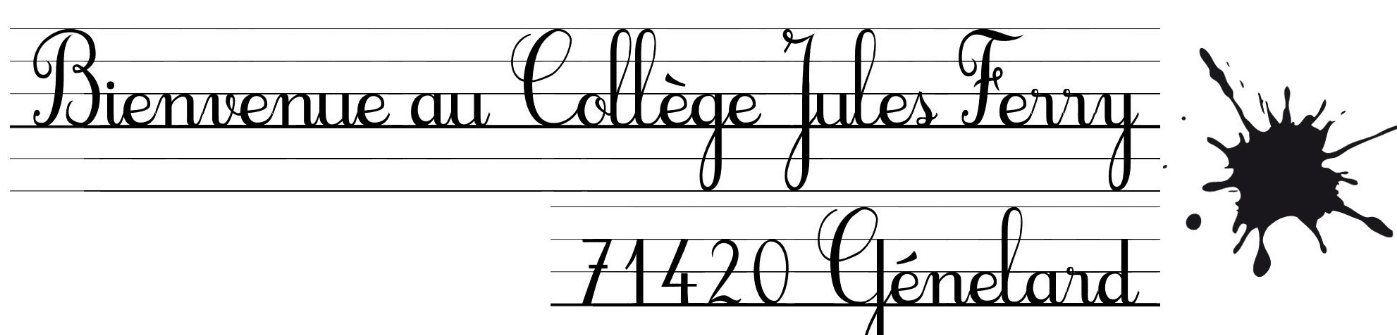 Bienvenue au Collège Jules Ferry
71420 Génelard